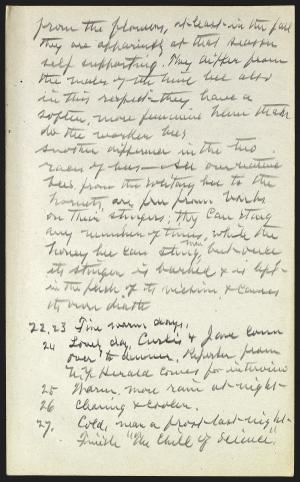 from the flowers, at least in the fall
they are apparently at that season
self supporting. They differ from
the males of the hive bee also
in this respect - they have a
softer, more feminine hum than
do the worker bees
Another difference in the two
races of bees — All our native
bees from the solitary bee to the
hornets, are free from barbs
on their stingers; they can sting
any number of times, while the
honey bee can sting but once
its stinger is barbed & is left
in the flesh of its victim, & causes
its own death
22, 23 Fine warm days.
24 Lovely day, Curtis & Jane come
over to dinner. Reporter from
N.Y. Herald comes for interview
25 Warm, more rain at night-
26 Clearing & cooler.
27. Cold, near a frost last night-
Finish "The Chill of Science".